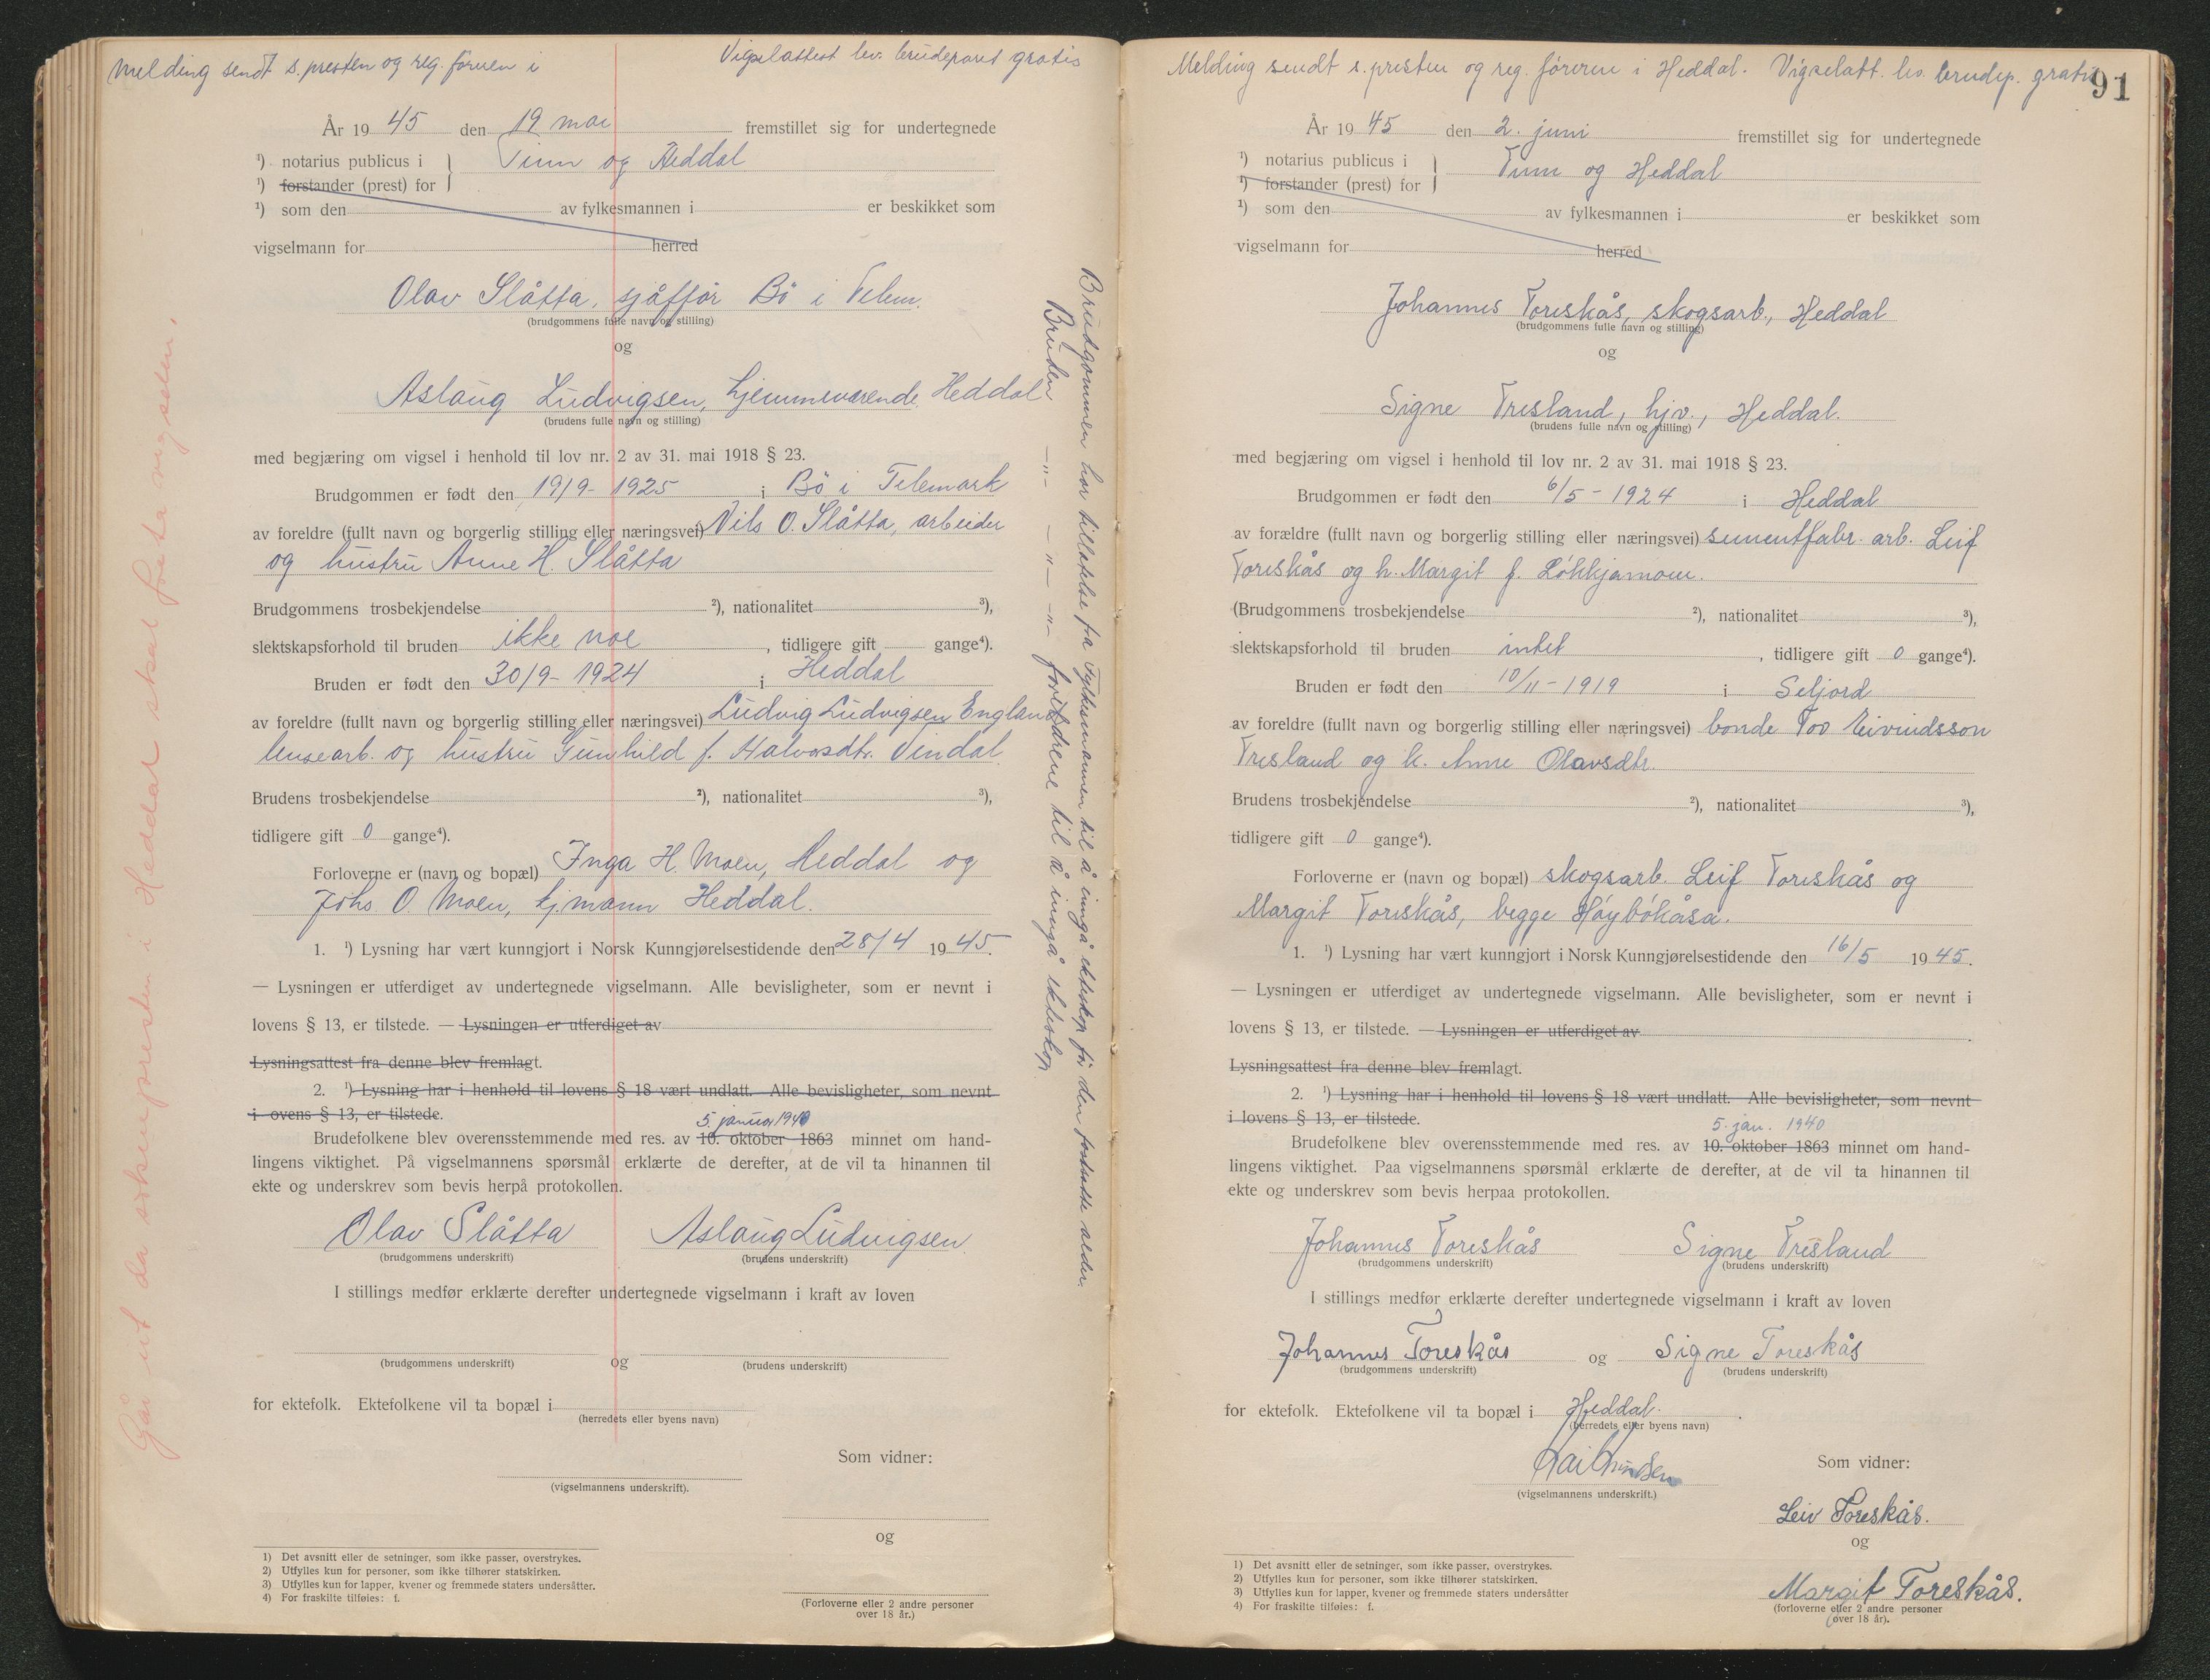 Melding sendt s.presten og reg. føreren i
Vigselattest lev. brudeparet gratis
År 19 45 den 19 mai fremstillet sig for undertegnede
¹) notarius publicus i } Tinn og Heddal
¹) forstander (prest) for
¹) som den av fylkesmannen i er beskikket som
vigselmann for herred
Olav Slåtta, sjåffør Bö i Telem.
(brudgommens fulle navn og stilling)
og
Aslaug Ludvigsen, hjemmeværende, Heddal
(brudens fulle navn og stilling)
med begjæring om vigsel i henhold til lov nr. 2 av 31. mai 1918 § 23.
Brudgommen er født den 19/9- 1925 i Bö i Telemark
av foreldre (fullt navn og borgerlig stilling eller næringsvei) Nils O. Slåtta, arbeider
og hustru Anne H. Slåtta
Brudgommens trosbekjendelse ²), nationalitet ³),
slektskapsforhold til bruden ikke noe, tidligere gift gange⁴).
Bruden er født den 30/9- 1924 i Heddal
av foreldre (fullt navn og borgerlig stilling eller næringsvei) Ludvig Ludvigsen England
lensearb. og hustru Gunhild f. Halvorsdtr. Vindal
Brudens trosbekjendelse ²), nationalitet ³),
tidligere gift 0 gange⁴).
Forloverne er (navn og bopæl) Inga H. Moen, Heddal og
Johs O. Moen, kj.mann Heddal.
1. ¹) Lysning har vært kunngjort i Norsk Kunngjørelsestidende den 28/4 19 45.
— Lysningen er utferdiget av undertegnede vigselmann. Alle bevisligheter, som er nevnt i
lovens § 13, er tilstede. — Lysningen er utferdiget av
Lysningsattest fra denne blev fremlagt.
2. ¹) Lysning har i henhold til lovens § 18 vært undlatt. Alle bevisligheter, som nevnt
i ovens § 13, er tilstede.
5. januar 1940
Brudefolkene blev overensstemmende med res. av 10. oktober 1863 minnet om hand-
lingens viktighet. På vigselmannens spørsmål erklærte de derefter, at de vil ta hinannen til
ekte og underskrev som bevis herpå protokollen.
Olav Slåtta Aslaug Ludvigsen
(brudgommens underskrift) (brudens underskrift)
I stillings medfør erklærte derefter undertegnede vigselmann i kraft av loven
og
(brudgommens underskrift) (brudens underskrift)
for ektefolk. Ektefolkene vil ta bopæl i
(herredets eller byens navn)
Som vidner:
(vigselmannens underskrift).
og
1) Det avsnitt eller de setninger, som ikke passer, overstrykes.
2) Utfylles kun for personer, som ikke tilhører statskirken.
3) Utfylles kun for lapper, kvener og fremmede staters undersåtter.
4) For fraskilte tilføies: f.
(Forloverne eller 2 andre personer
over 18 år.)
Går ut da soknepresten i Heddal skal foreta vigselen.
Brudgommen har tillatelse fra fylkesmannen til å inngå ekteskap før den fastsatte alder.
Bruden —"— —"— —"— foreldrene til å inngå ekteskap
Melding sendt s.presten og reg. føreren i Heddal. Vigselatt. lev. brudep. gratis
91
År 19 45 den 2. juni fremstillet sig for undertegnede
¹) notarius publicus i } Tinn og Heddal
¹) forstander (prest) for
¹) som den av fylkesmannen i er beskikket som
vigselmann for herred
Johannes Toreskås, skogsarb., Heddal
(brudgommens fulle navn og stilling)
og
Signe Tresland, hjv., Heddal.
(brudens fulle navn og stilling)
med begjæring om vigsel i henhold til lov nr. 2 av 31. mai 1918 § 23.
Brudgommen er født den 6/5 - 1924 i Heddal
av forældre (fullt navn og borgerlig stilling eller næringsvei) sementfabr. arb. Leif
Toreskås og h. Margit f. Løkkjamoen.
(Brudgommens trosbekjendelse ²), nationalitet ³),
slektskapsforhold til bruden intet, tidligere gift 0 gange⁴).
Bruden er født den 10/11 - 1919 i Seljord
av foreldre (fullt navn og borgerlig stilling eller næringsvei) bonde Tov Eivindsson
Tresland og h. Anne Olavsdtr.
Brudens trosbekjendelse ²), nationalitet ³),
tidligere gift 0 gange⁴).
Forloverne er (navn og bopæl) skogsarb. Leif Toreskås og
Margit Toreskås, begge Høybøkåsa.
1. ¹) Lysning har vært kunngjort i Norsk Kunngjørelsestidende den 16/5 19 45.
— Lysningen er utferdiget av undertegnede vigselmann. Alle bevisligheter, som er nevnt i
lovens § 13, er tilstede. — Lysningen er utferdiget av .
Lysningsattest fra denne blev fremlagt.
2. ¹) Lysning har i henhold til lovens § 18 vært undlatt. Alle bevisligheter, som nevnt
i lovens § 13, er tilstede.
5. jan. 1940
Brudefolkene blev overensstemmende med res. av 10. oktober 1863 minnet om hand-
lingens viktighet. Paa vigselmannens spørsmål erklærte de derefter, at de vil ta hinannen til
ekte og underskrev som bevis herpaa protokollen.
Johannes Toreskås Signe Tresland
(brudgommens underskrift) (brudens underskrift)
I stillings medfør erklærte derefter undertegnede vigselmann i kraft av loven
Johannes Toreskås og Signe Toreskås
(brudgommens underskrift) (brudens underskrift)
for ektefolk. Ektefolkene vil ta bopæl i Heddal.
(herredets eller byens navn)
Som vidner:
(vigselmannens underskrift.)
Leiv Toreskås.
og
Margit Toreskås.
(forloverne eller 2 andre personer
over 18 år).
1) Det avsnitt eller de setninger, som ikke passer, overstrykes.
2) Utfylles kun for personer, som ikke tilhører statskirken.
3) Utfylles kun for lapper, kvener og fremmede staters undersåtter
4) For fraskilte tilføies: f.